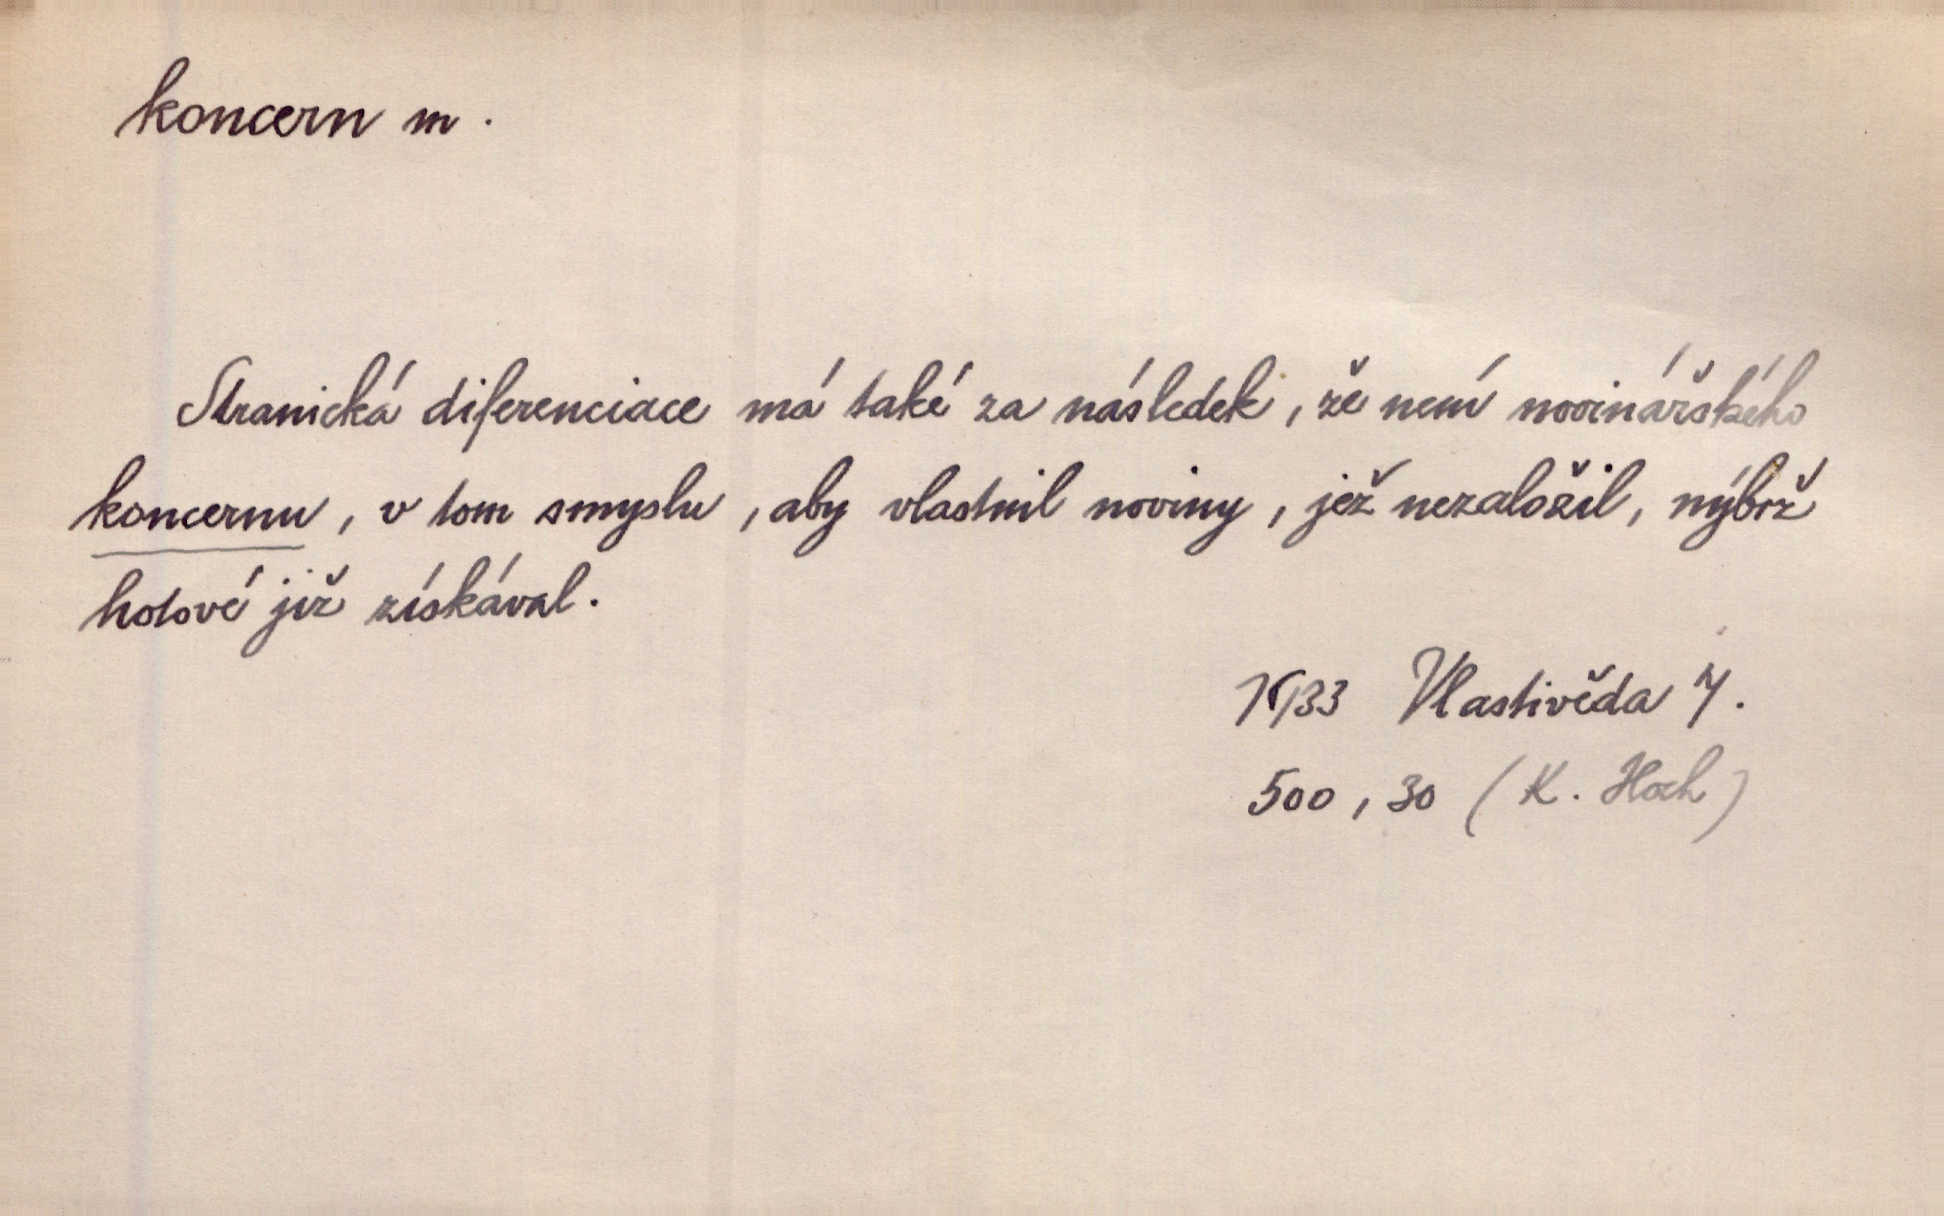 koncern m.
Stranická diferenciace má také za následek, že není novinářského
koncernu, v tom smyslu, aby vlastnil noviny, jež nezaložil, nýbrž
hotové již získával.
1933 Vlastivěda 7.
500, 30 (K. Hoch)